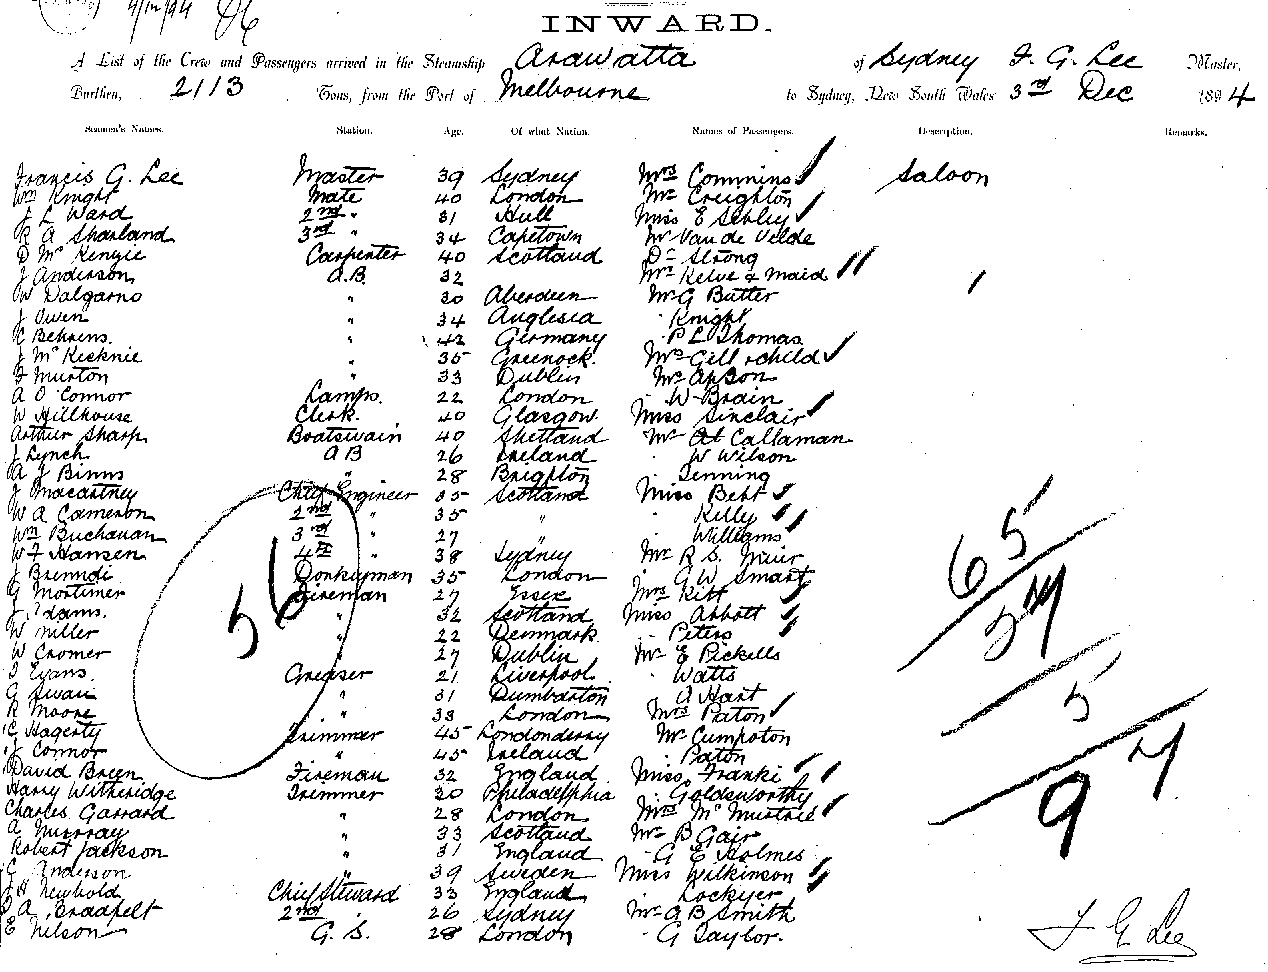 4/12/94 86
INWARD.
A List of the Crew and Passengers arrived in the Steamship Arawatta of Sydney F. G. Lee Master,
Burthen, 2113 Tons, from the Port of Melbourne to Sydney, New South Wales 3rd Dec 1894
Seamen's Names. Station. Age. Of what Nation. Names of Passengers. Description. Remarks.
Francis G. Lee Master 39 Sydney Mrs Commins Saloon
Wm Knight Mate 40 London Mr Creighton
J L Ward 2nd " 31 Hull Miss E Selbley
R A Sharland 3rd " 34 Capetown Mr Van de Velde
D McKenzie Carpenter 40 Scotland Dr Strong
J Anderson A.B. 32 Mrs Kelve & Maid
W Dalgarno " 30 Aberdeen Mr G Butter
J Owen " 34 Anglesea " Knight
C Behrens " 42 Germany " P L Thomas
J McKecknie " 35 Greenock Mrs Gell & child
F Murton " 33 Dublin Mr Apson
A O'Connor Lamps. 22 London " W Brain
W Hillhouse Clerk. 40 Glasgow Miss Sinclair
Arthur Sharp Boatswain 40 Shetland Mr At Callaman
J Lynch A B 26 Ireland " W Wilson
A J Binns " 28 Brighton " Jenning
J Macartney Chief Engineer 35 Scotland Miss Bett
W A Cameron 2nd " 35 " " Kelly
Wm Buchanan 3rd " 27 " " Williams
W F Hansen 4th " 38 Sydney Mr R S. Muir
J Brenndi Donkeyman 35 London " G W Smart
G Mortimer Fireman 27 Essex Mrs Kitt
J. Adams. " 32 Scotland Miss Abbott
W Miller " 22 Denmark " Peters
W Cromer " 27 Dublin Mr E Pickells
T Evans. Greaser 21 Liverpool " Watts
G Swan " 31 Dumbarton " A Hart
R Moore " 33 London Mrs Paton
C Hagerty Trimmer 45 Londonderry Mr Cumpston
J Connor " 45 Ireland " Paton
David Breen Fireman 32 England Miss Franki
Harry Witheridge Trimmer 20 Philadelphia " Goldsworthy
Charles Garrard " 28 London Mrs McMurtrie
A Murray " 33 Scotland Mr B Gair
Robert Jackson " 31 England " G E Holmes
G Anderson " 39 Sweden Miss Wilkinson
J H Newbold Chief Steward 33 England " Lockyer
A. Bradfelt 2nd " 26 Sydney Mr A B Smith
E Nelson G. S. 28 London " G Taylor.
56
65
5
97
F G Lee